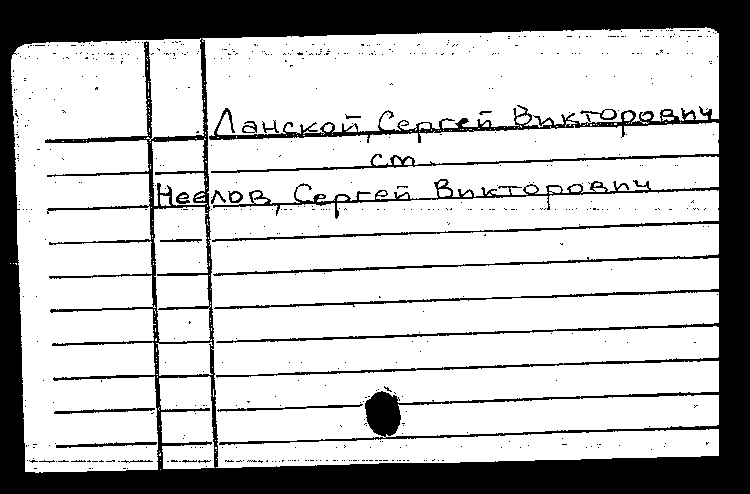 Ланской, Сергей Викторович
см.
Неелов, Сергей Викторович